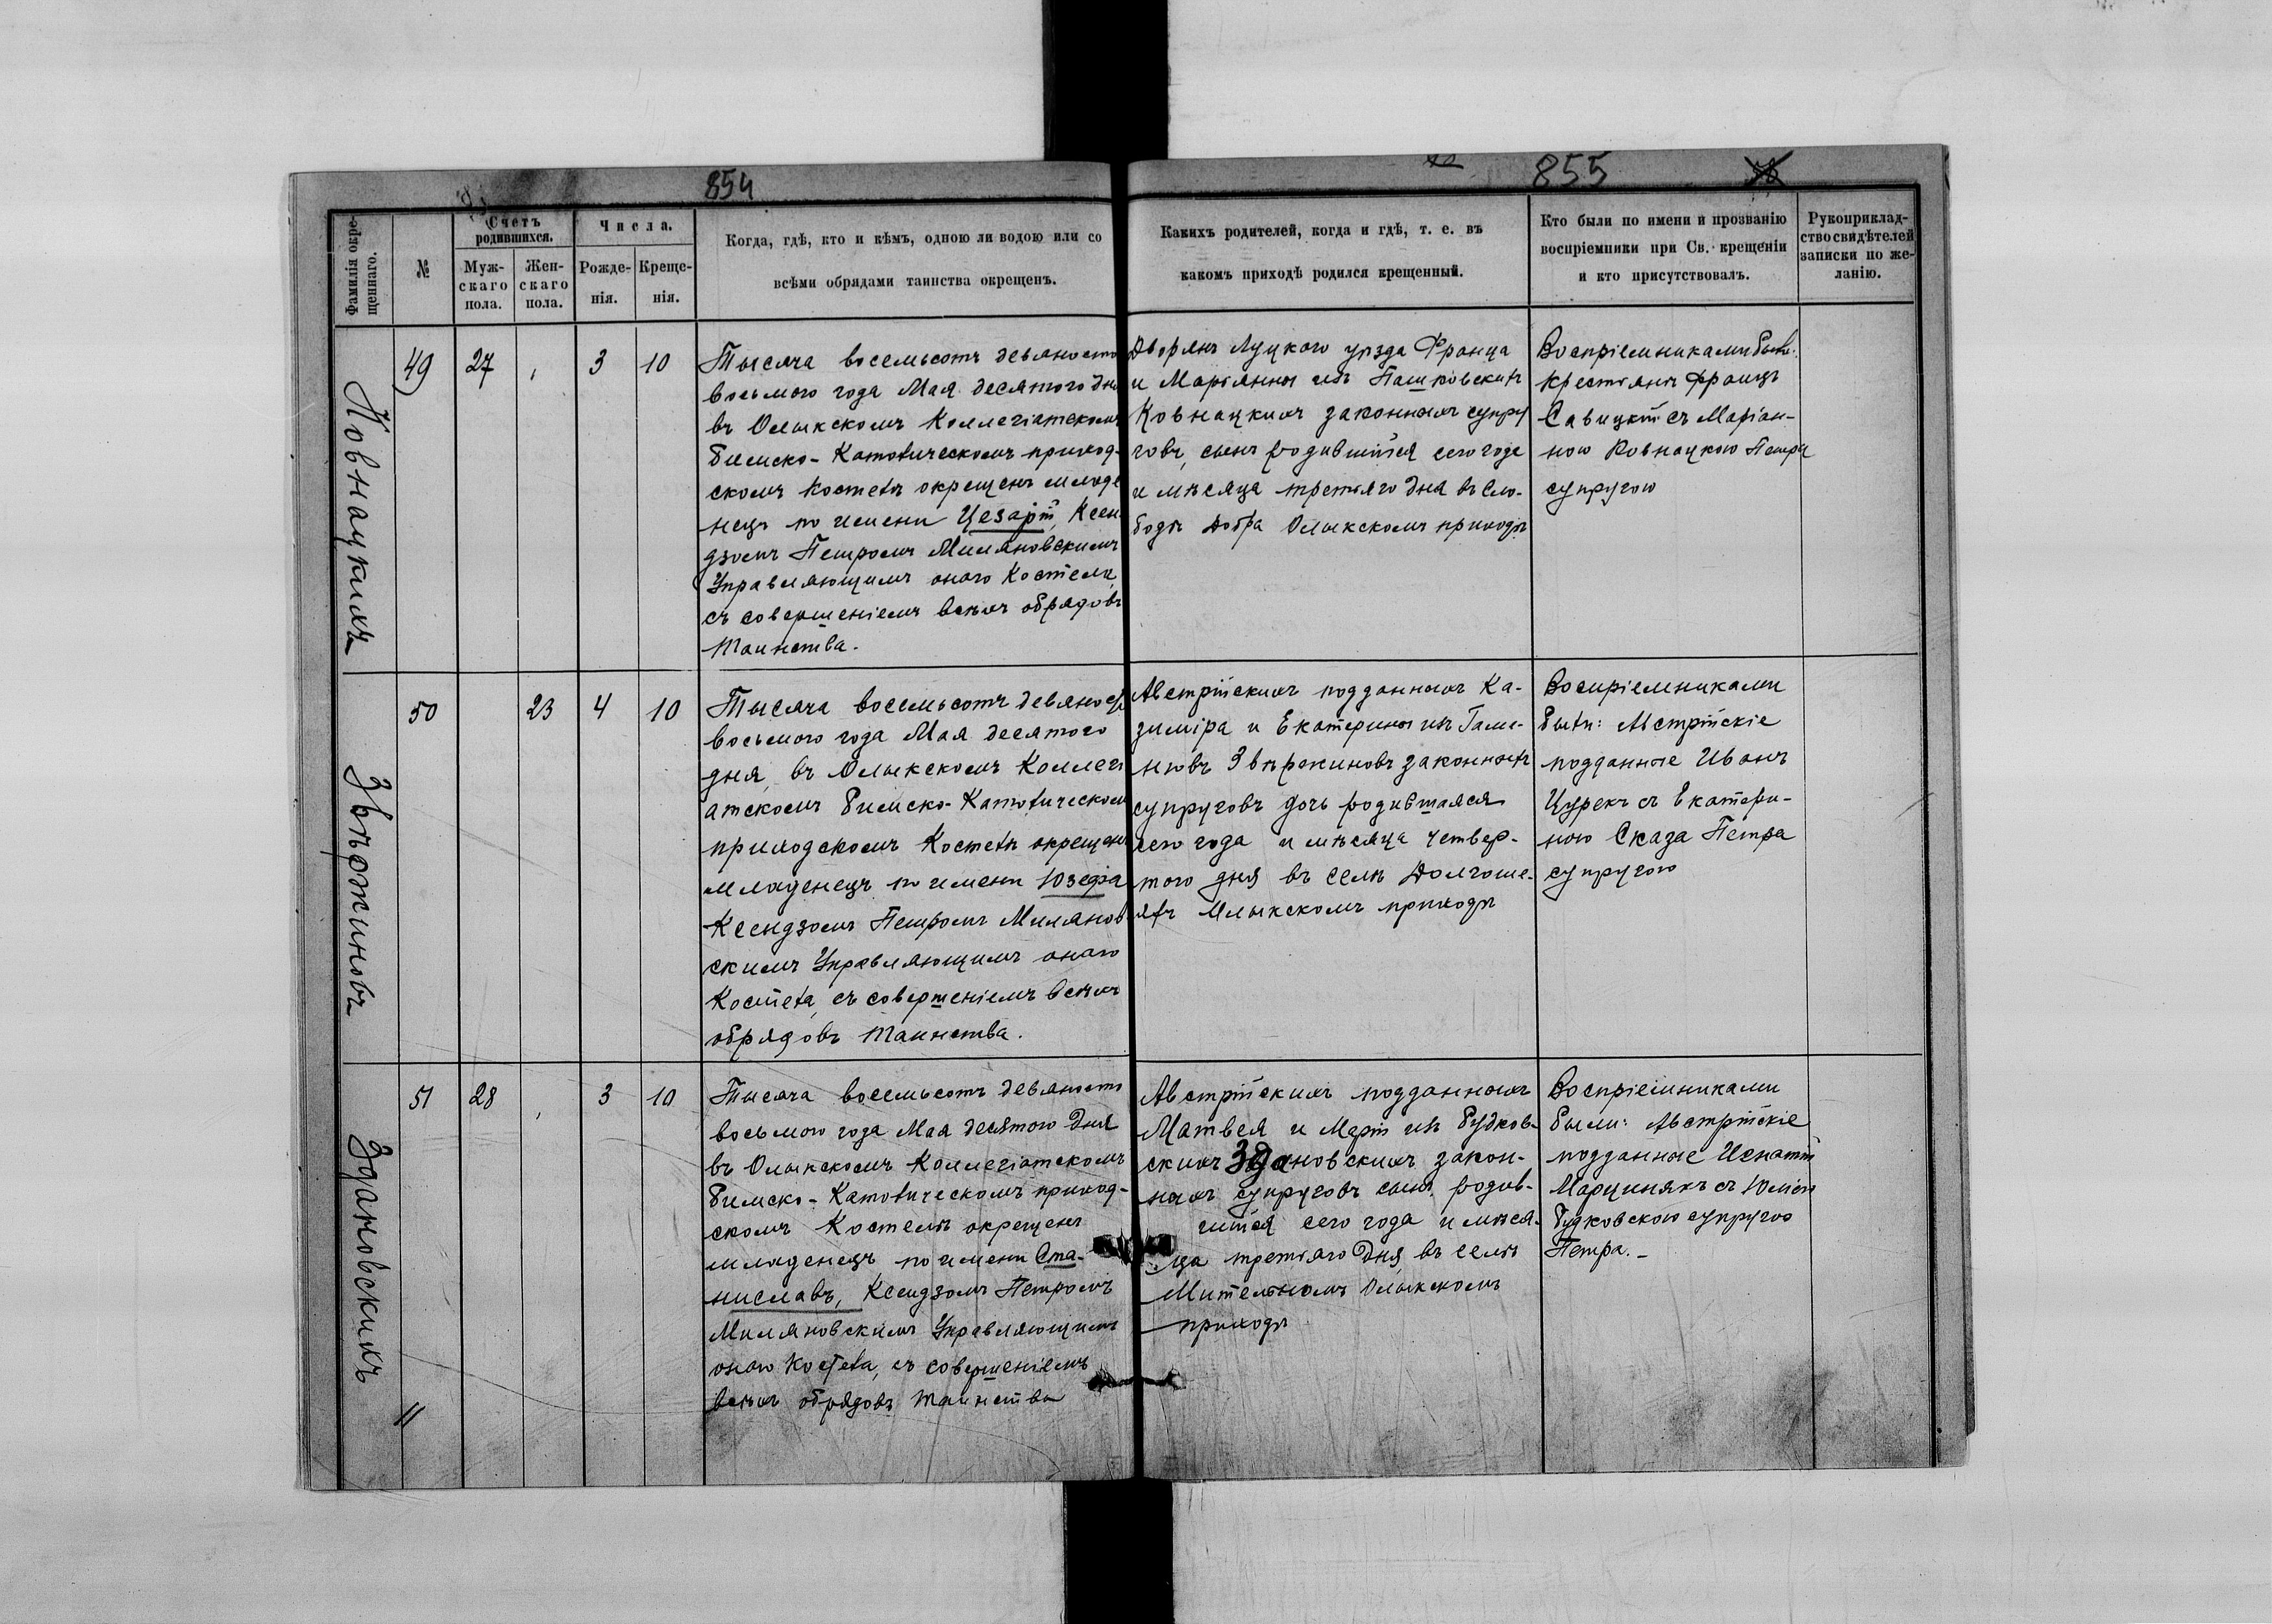 854
Фамилія окре-
щеннаго.
№
Счетъ
родившихся.
Муж-
скаго
пола.
Жен-
скаго
пола.
Числа.
Рожде-
нія.
Креще-
нія.
Когда, гдѣ, кто и кѣмъ, одною ли водою или со
всѣми обрядами таинства окрещенъ.
855
Какихъ родителей, когда и гдѣ, т. е. въ
какомъ приходѣ родился крещенный.
Кто были по имени и прозванію
воспріемники при Св. крещеніи
и кто присутствовалъ.
Рукоприклад-
ство свидѣтелей
записки по же-
ланію.
Ковнацкихъ
49
27
3
10
Тысяча восемьсотъ девяносто
восьмого года Мая десятого дня
въ Олыкскомъ Коллегіатскомъ
Римско-Католическомъ приход-
скомъ Костелѣ окрещенъ младе
нецъ по имени Цезарій, Ксен-
дзомъ Петромъ Миляновскимъ
Управляющимъ оного Костела,
съ совершеніемъ всѣхъ обрядовъ
Таинства.
Дворянъ Луцкого уѣзда Франца
и Маріянны изъ Пашковскихъ
Ковнацкихъ законныхъ супру
говъ, сынъ родившійся сего года
и мѣсяца третьяго дня въ Сло-
бодѣ Добра Олыкскомъ приходѣ
Воспріемниками были:
крестьянъ Францъ
Савицкій съ Маріан-
ною Ковнацкою Петра
супругою
Звѣрожиновъ
50
23
4
10
Тысяча восемьсотъ девяносто
восьмого года Мая десятого
дня, въ Олыкскомъ Коллегі
атскомъ Римско-Католическомъ
приходскомъ Костелѣ окрещенъ
младенецъ по имени Юзефа
Ксендзомъ Петромъ Милянов
скимъ Управляющимъ оного
Костела, съ совершеніемъ всѣхъ
обрядовъ Таинства.
Австрійскихъ подданныхъ Ка-
зиміра и Екатерины изъ
законныхъ
супруговъ дочь родившаяся
сего года и мѣсяца четвер-
того дня въ селѣ Долгоше-
яхъ Олыкскомъ приходѣ
Воспріемниками
были: Австрійскіе
подданные Иванъ
Цурекъ съ Екатери-
ною Сказа Петра
супругою
Здановскихъ
51
28
3
10
Тысяча восемьсотъ девяносто
восьмого года Мая десятого Дня
въ Олыкскомъ Коллегіатскомъ
Римско-Католическомъ приход-
скомъ Костелѣ окрещенъ
младенецъ по имени Ста-
ниславъ, Ксендзомъ Петромъ
Миляновскимъ Управляющимъ
оного Костела, съ совершеніемъ
всѣхъ обрядовъ Таинства
Австрійскихъ подданныхъ
Матвея и Маріи изъ Рудков-
скихъ Здановскихъ закон-
ныхъ супруговъ сынъ, родив-
шійся сего года и мѣся-
ца третьяго Дня, въ селѣ
Мительномъ Олыкскомъ
приходѣ
Воспріемниками
были: Австрійскіе
подданные Игнатій
Марцинякъ съ Юліею
Рудковскою супругою
Петра.